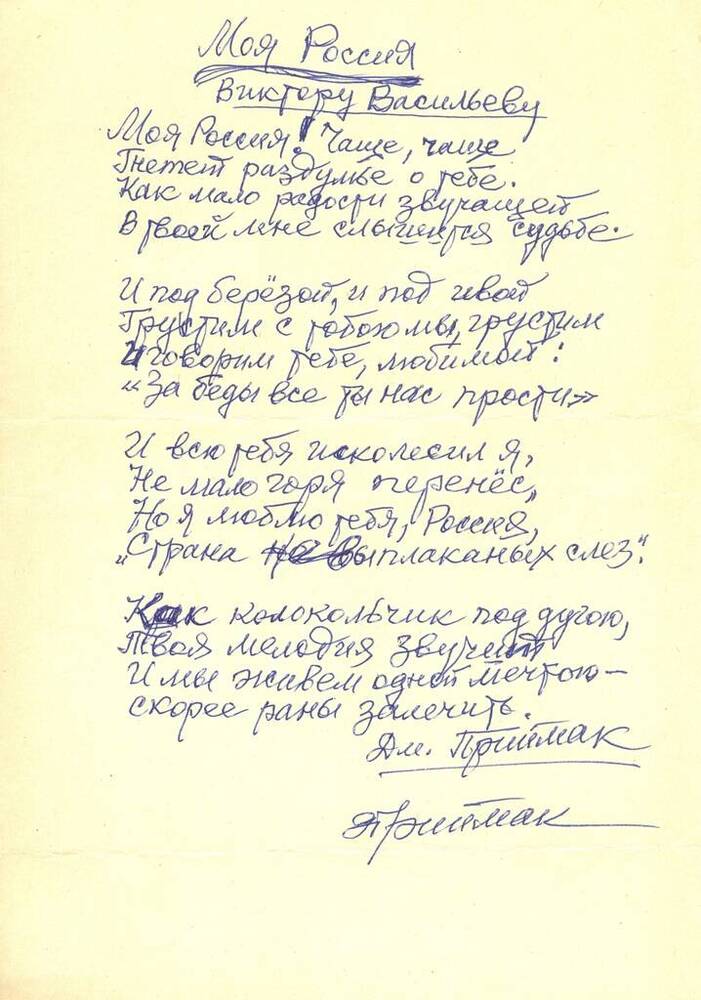 Моя Россия
Виктору Васильеву
Моя Россия! Чаще, чаще
Гнетет раздумье о тебе.
Как мало радости звучащей
В твоей мне слышится судьбе.
И под берёзой, и под ивой
Грустим с тобою мы, грустим
И говорим тебе, любимой:
«За беды все ты нас прости»
И всю тебя исколесил я,
Не мало горя перенёс,
Но я люблю тебя, Россия,
„Страна выплаканых слез".
Как колокольчик под дугою,
Твоя мелодия звучит
И мы живем одной мечтою—
скорее раны залечить.
Дм. Приймак
Приймак